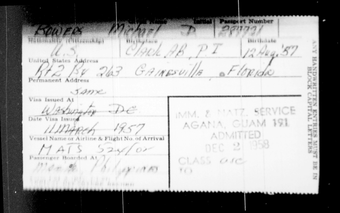 Initial Passport Number
BOWERS Michael D.
Nationality (Citizenship) Birthplace Birthdate
U.S. Clark AB, P.I 12 Aug '57
United States Address
Rt 2 Bx 263 Gainesville, Florida
Permanent Address
same
Visa Issued At
Washington DC
Date Visa Issued
11 March 1957
Vessel Name or Airline & Flight No. of Arrival
MATS
Passenger Boarded At
Manila Philippines
IMM. & NATZ. SERVICE
AGANA, GUAM 191
ADMITTED
DEC 2 1958
CLASS
TO
ANY HANDWRITTEN ENTRIES MUST BE IN
BLOCK CAPITAL LETTERS